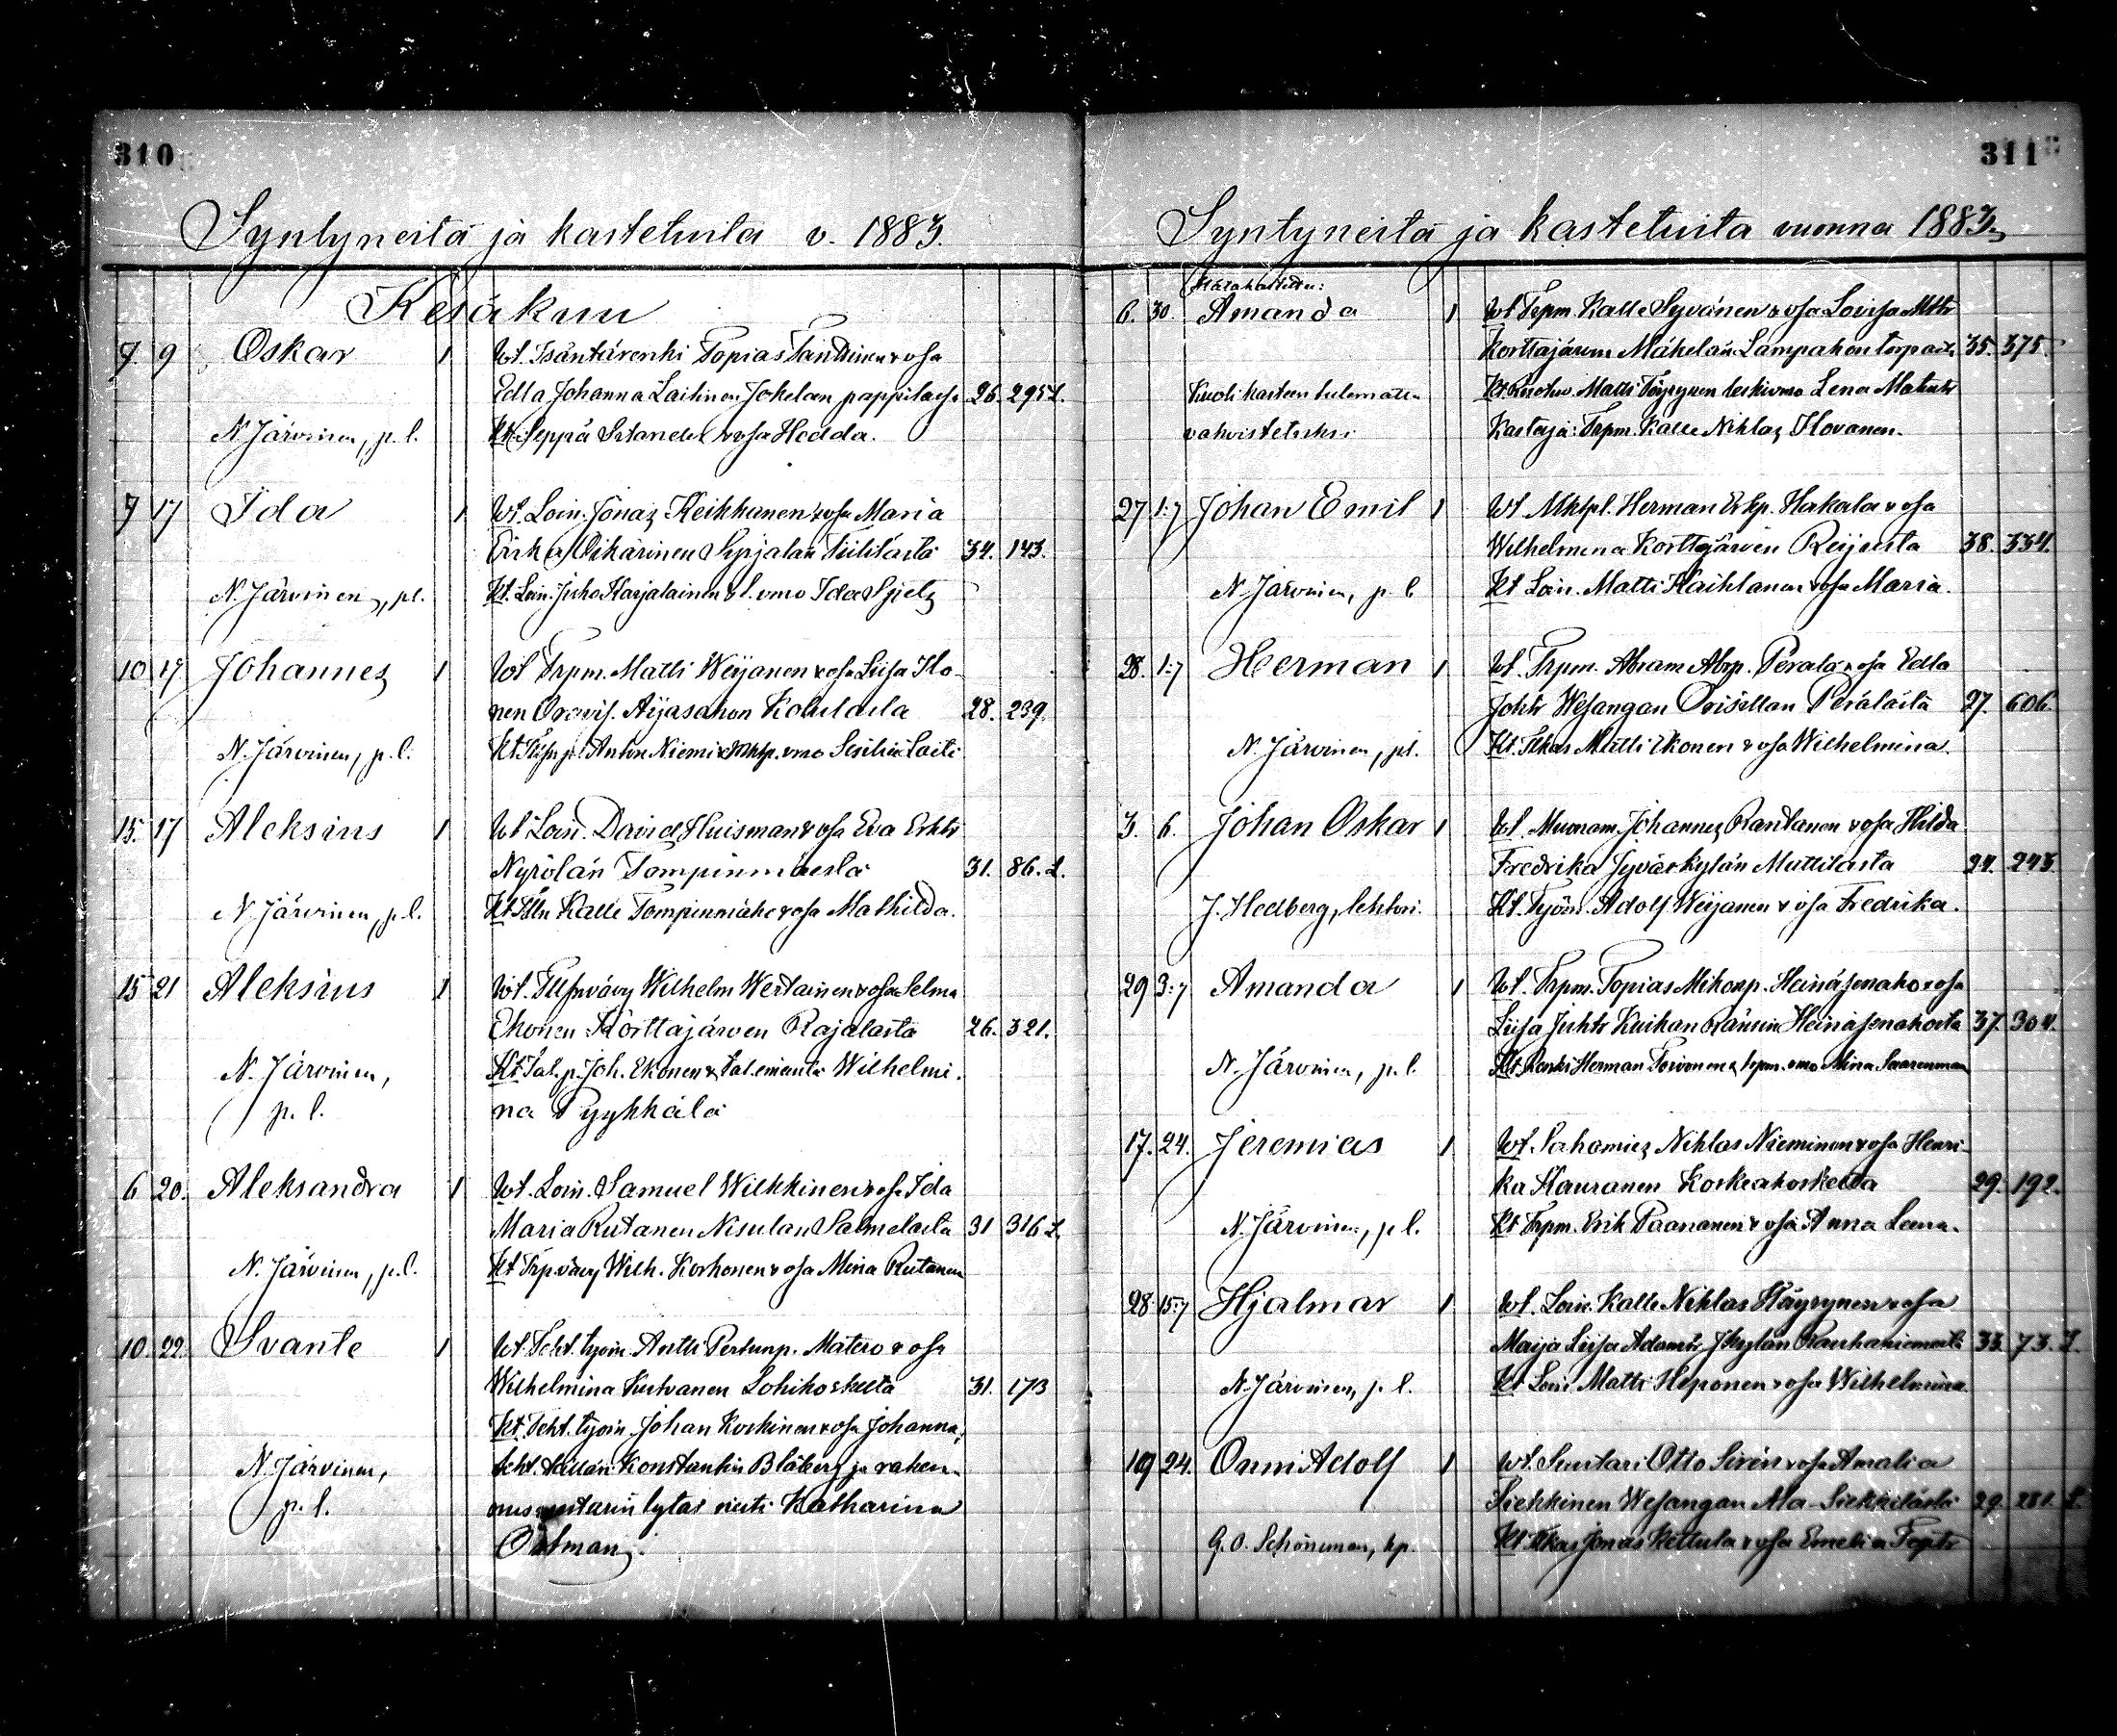 310
Syntyneitä ja kastetuita v. 1883.
Kesäkuu
7 9 Oskar 1 Wt. Isäntärenki Topias Tanttinen & vsa
Edla Johanna Laitinen Jokelan pappilasta 26. 295 L.
N. Järvinen, p. l. Kt. Seppä & vsa Hedda.
7 17 Ida 1 Wt. Loin. Jonas Keihhanen & vsa Maria
Oikarinen Syrjälän 34. 143.
N. Järvinen, pl. Kt. Loin. Juho Karjalainen & l. vmo Ida
10 17 Johannes 1 Wt Trpm. Matti Weijanen & vsa Liisa Ilo-
nen Oravis. Aijasahon 28. 239.
N. Järvinen, p. l. Kt. Anton Niemi & vmo
15. 17 Aleksius 1 Wt Loin. David Huisman & vsa Eva Erktr
Nyrölän Tompinmäestä 31. 86. L.
N. Järvinen, p. l. Kt Kalle Tompinmäki & vsa Mathilda.
15 21 Aleksius 1 Wt. Wilhelm Wertainen & vsa Selma
Ekonen Korttajärven Rajalasta 26. 321.
N. Järvinen, Kt Tal. p. Joh. Ekonen & tal. emäntä Wilhelmi-
p. l. na Pyykkälä
6 20. Aleksandra 1 Wt. Loin. Samuel Wilkkinen & vsa Ida
Maria Rutanen Nisulan Salmelasta 31 316 L.
N. Järvinen, p. l. Kt Trp. vävy Wilh. Korhonen & vsa Mina Rutanen
10. 22. Svante 1 Wt. Teht. työm. Antti Pertunp. Matero & vsa
Wilhelmina Lohikoskelta 31. 173
Kt. Teht. työm. Johan Koskinen & vsa Johanna,
N. Järvinen, teht. Konstantin Blåberg ja raken-
p. l. tytär neiti Katharina
Östman.
311
Syntyneitä ja kastetuita vuonna 1883.
Hätäkastettu:
6. 30. Amanda 1 Wt Trpm. Kalle Syvänen & vsa Lovisa Mttr
Korttajärven Mäkelän Lampahon torpasta 35. 375.
Kuoli kasteen tulematta Kt. Matti Töyrynen leskivmo Lena
vahvistetuksi Kastaja: Trpm. Kalle Niklas Hovanen.
27 1:7 Johan Emil 1 Wt Mktpl. Herman Erkp. Hakala & vsa
Wilhelmina Korttajärven 38. 334.
N. Järvinen, p. l Kt Loin. Matti Kaihlanen & vsa Maria.
28. 1:7 Herman 1 Wt. Trpm. Abram Abrp. Perälä & vsa Edla
Johtr Wesangan Perälästä 27. 606
N. Järvinen, pl. Kt. Matti Ekonen & vsa Wilhelmina.
3. 6. Johan Oskar 1 Wt. Muonam. Johannes Rantanen & vsa Hilda
Fredrika Jyväskylän Mattilasta 24. 243
J. Hedberg, lehtori. Kt. Työm. Adolf Weijanen & vsa Fredrika.
29 3:7 Amanda 1 Wt. Trpm. Topias Mikonp. Heinäsenaho & vsa
Liisa Juhtr Kuikan Heinäsenahosta 37. 304.
N. Järvinen, p. l. Kt. Renki Herman Toivonen & trpm. vmo Mina
17. 24. Jeremias 1 Wt. Sahamies Niklas Nieminen & vsa Henri-
ka Kauranen Koskeakoskelta 29. 192.
N. Järvinen, p l. Kt Trpm. Erik Paananen & vsa Anna Leena.
28 15:7 Hjalmar 1 Wt. Loin. Kalle Niklas Höyrynen & vsa
Maija Liisa Adamtr Jkylän Rauhaniemestä 33. 73. L.
N. Järvinen, p. l. Kt Loin. Matti Heponen & vsa Wilhelmina
19 24. Onni Adolf 1 Wt. Suutari Otto Sirén & vsa Amalia
Siekkinen Wesangan Ala-Siekkilästä 29. 281. L.
G. O. Schöneman, kp. Kt Jonas Kettula & vsa Emelia